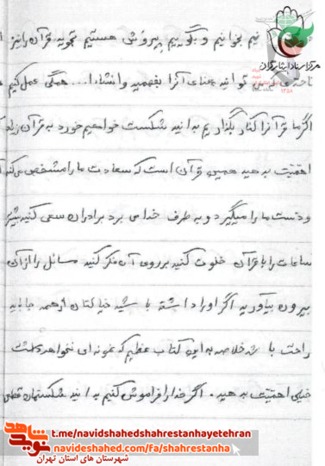 نیم بخوانیم و بگوییم پیروش هستیم تجوید قرآن را نیز
توانید معنای آنرا بفهمید وانشاءا... همگی عمل کنیم
اگر ما قرآن را کنار بگذاریم بدانید شکست خواهیم خورد به قرآن زیاد
اهمیت بدهید همین قرآن است که سعادت ما را مشخص می کند
و دست ما را میگیرد و به طرف خدا می برد برادران سعی کنید بیشتر
ساعات را با قرآن خلوت کنید بر روی آن فکر کنید مسائل را از آن
بیرون بیاورید اگر او را داشته باشید خیالتان از همه جا باید
راحت باشد خلاصه به این کتاب عظیم که نمونه ای نخواهد داشت
خیلی اهمیت بدهید. اگر خدا را فراموش کنیم بدانید شکستمان قطعی
نوید شاهد
t.me/navidshahedshahrestanhayetehran
navideshahed.com/fa/shahrestanha
شهرستان های استان تهران